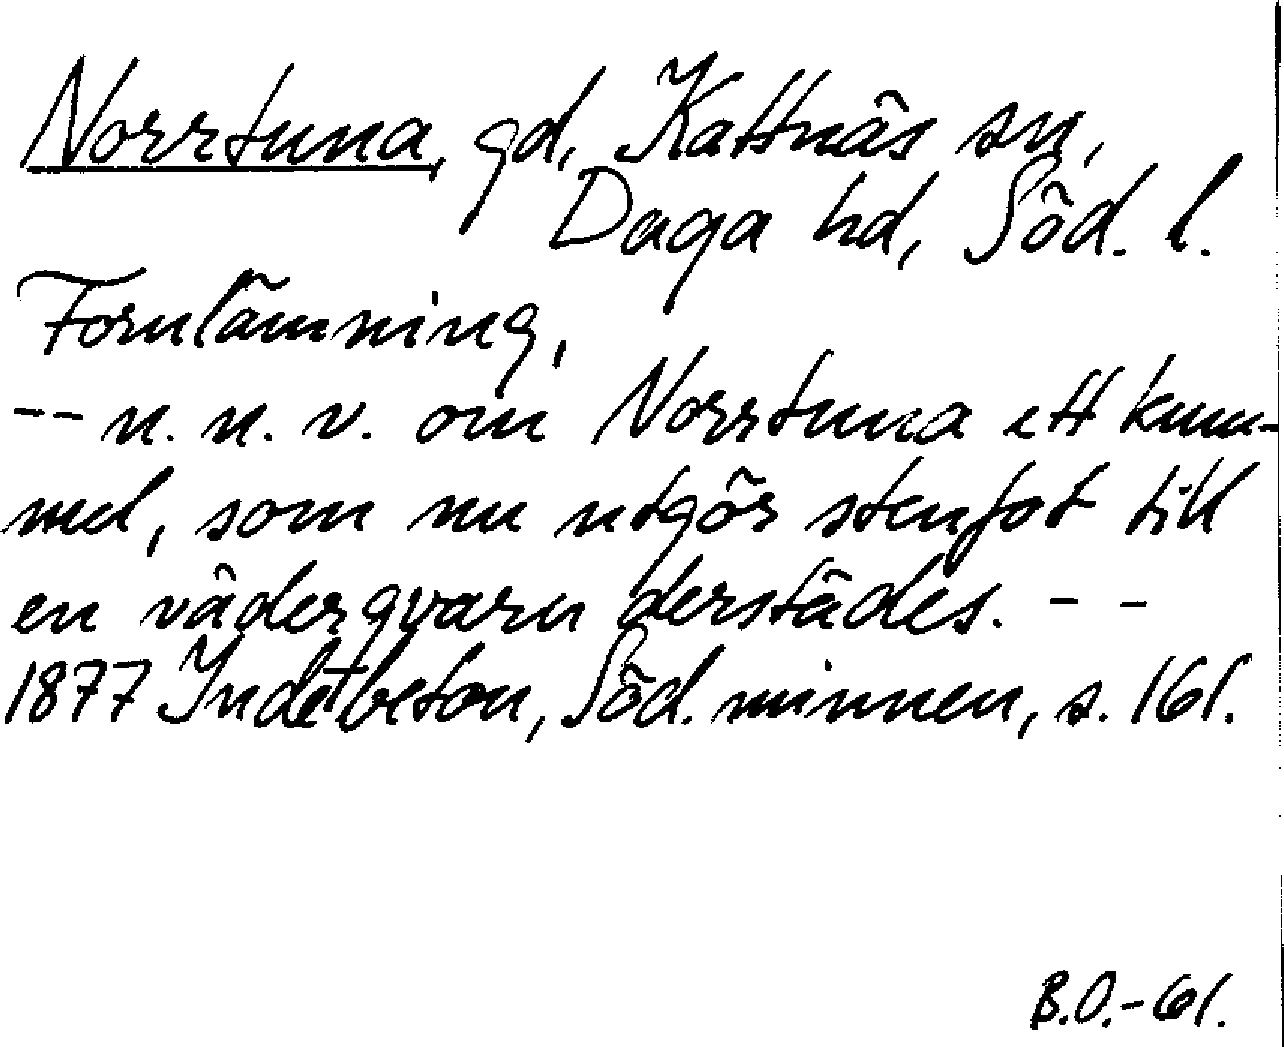 Norrtuna, gd, Kattnäs sn,
Daga hd, Söd. l.
Fornlämning,
-- n. n. v. om Norrtuna ett kum-
mel, som nu utgör stenfot till
en väderqvarn derstädes. - -
1877 Indebetou, Söd. minnen, s. 161.
B.O.-61.